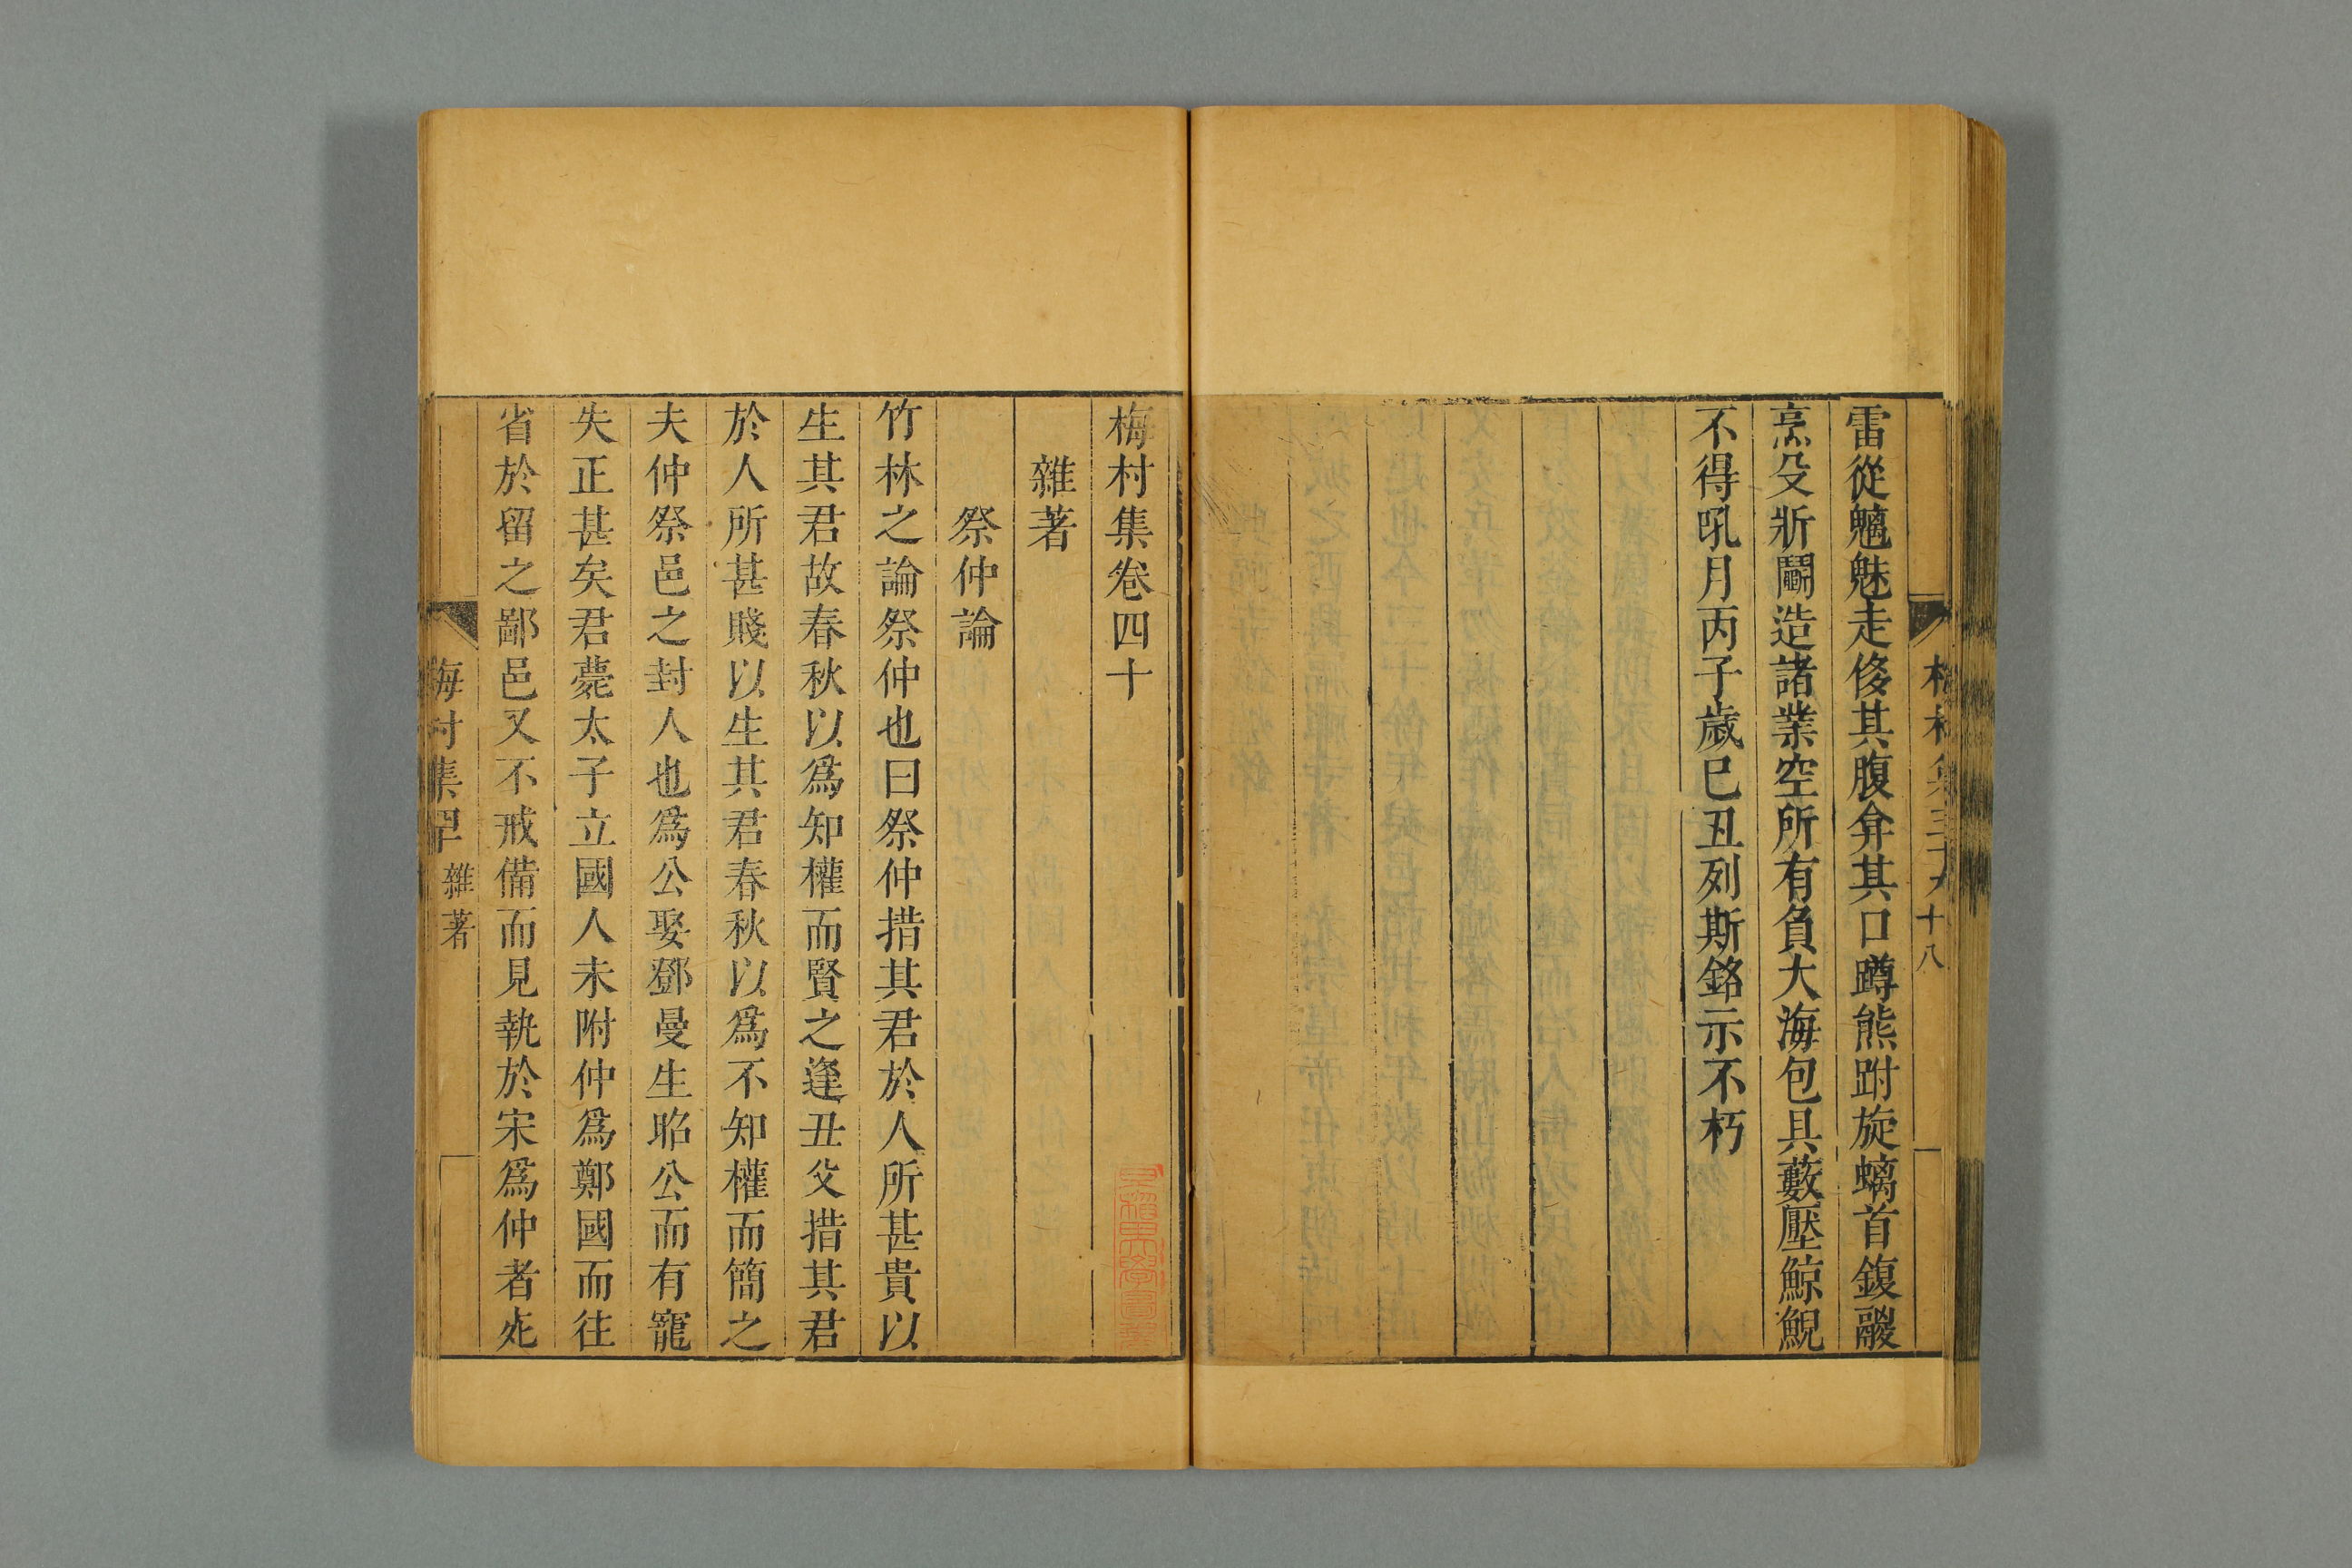 雷從魑魅走侈其腹弇其口蹲熊跗旋螭首鍑鬷
烹殳斨鬬造諸業空所有負大海包具藪壓鯨鯢
不得吼月丙子歲巳丑列斯銘示不朽
十八
梅村集卷四十
雜著
祭仲論
竹林之論祭仲也曰祭仲措其君於人所甚貴以
生其君故春秋以爲知權而賢之逢丑父措其君
於人所甚賤以生其君春秋以爲不知權而簡之
夫仲祭邑之封人也爲公娶鄧曼生昭公而有寵
失正甚矣君薨太子立國人未附仲爲鄭國而往
省於留之鄙邑又不戒備而見執於宋爲仲者死
梅村集卌 雜著